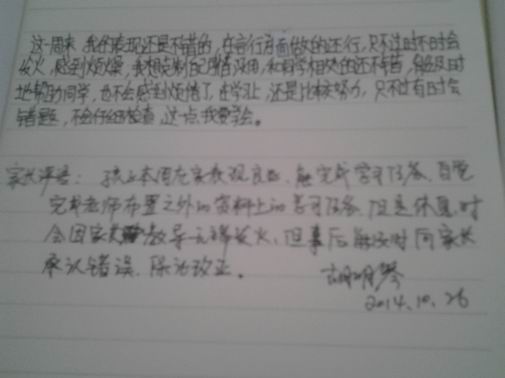 这一周来,我的表现还是不错的,在言行方面做的还行,只不过时不时会
发火,感到烦燥,我想克制的情绪,和同学相处的还不错,能及时
地帮助同学,也不会感到烦恼了,在学习上,还是比较努力,只不过有时会
错题,不会仔细检查,这一点我要学会。
家长评语:孩子本周在家表现良好、能完成学习任务、自觉
完成老师布置之外的资料上的学习任务.但是休息时
会因家长教导无端发火,但事后能及时向家长
承认错误、保证改正。
胡明琴
2014.10.26